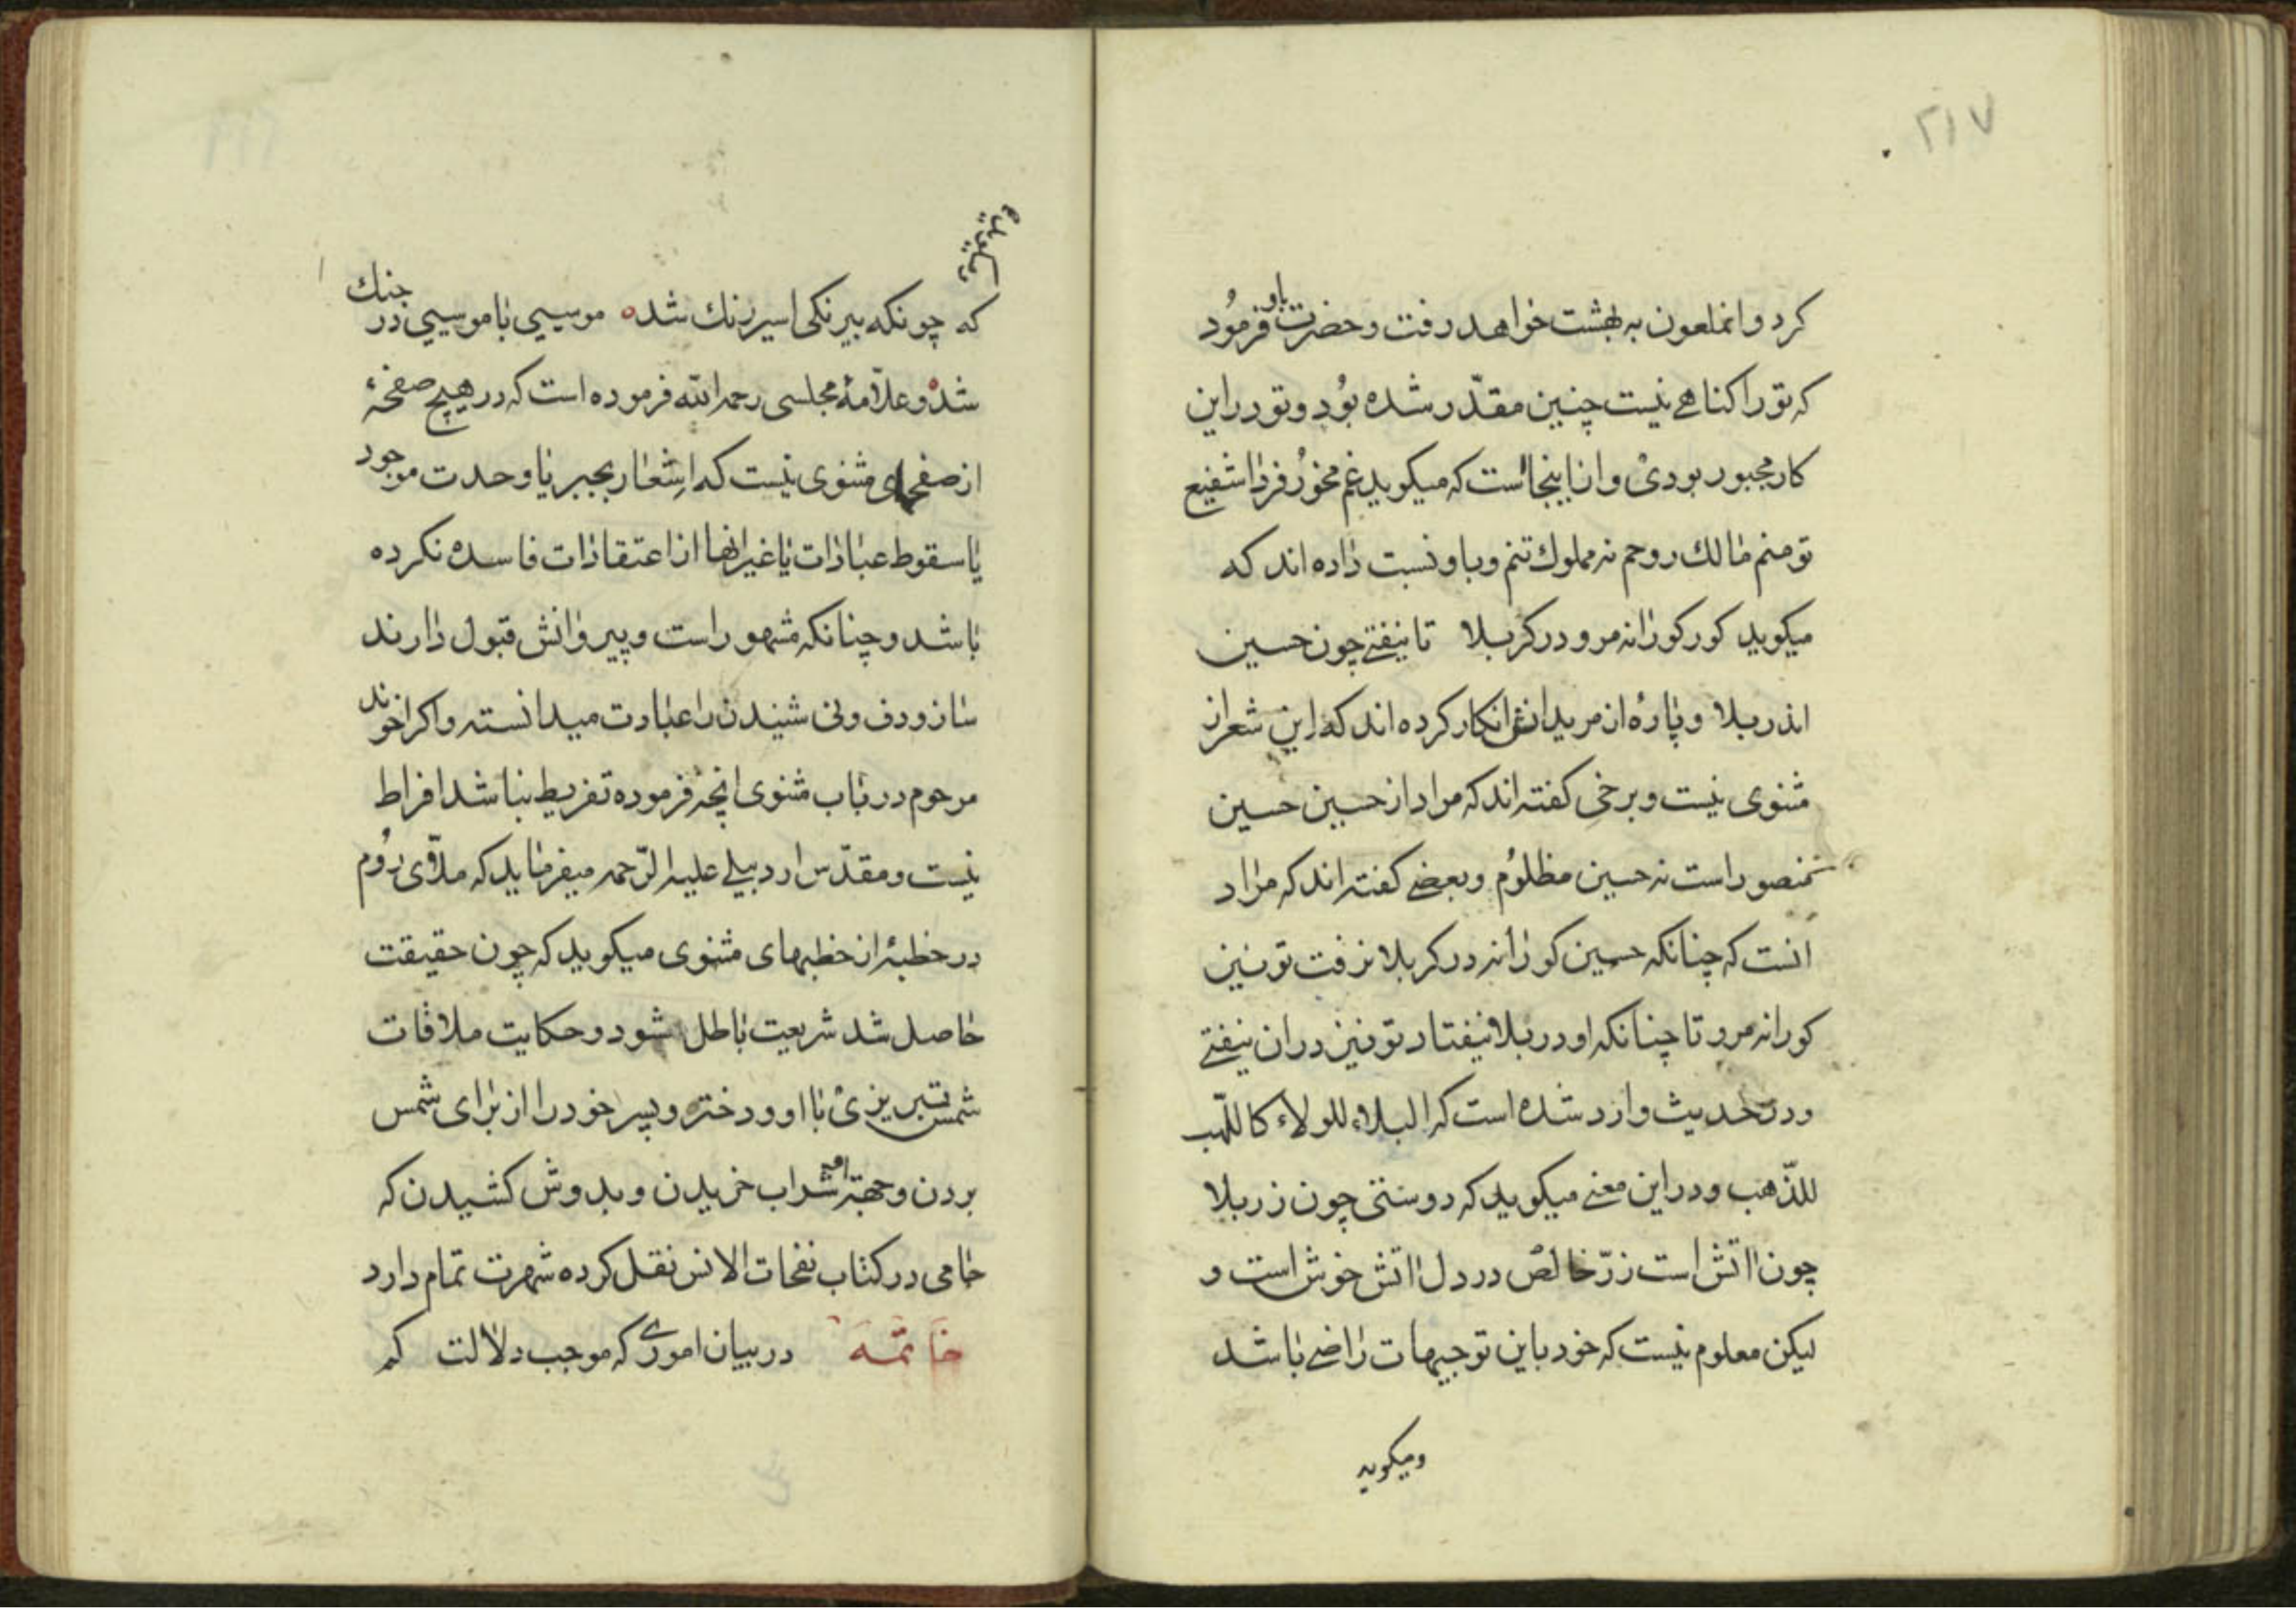 ۲۱۷
کرد و انملعون به بهشت خواهد رفت و حضرت باو فرمود
که تو را کناهے نیست چنین مقدّر شده بود و تو در این
کار مجبور بودی و از اینجاست که میکوید غم مخور فردا شفیع
تو منم مالك روحم نه مملوك تنم و باو نسبت داده اند که
میکوید کور کورانه مرو در کربلا تا نیفتے چون حسین
اندر بلا و پارۀ از مریدانش انکار کرده اند که این شعر از
مثنوی نیست و برخی کفته اند که مراد از حسین حسین
منصور است نه حسین مظلوم و بعضے کفته اند که مراد
انست که چنانکه حسین کورانه در کربلا نرفت تو نیز
کورانه مرو تا چنانکه او در بلا نیفتاد تو نیز در ان نیفتے
و در حدیث وارد شده است که البلاء للولاء کاللّهب
للذّهب و در این معنے میکوید که دوستی چون زر بلا
چون اتش است زرّ خالص در دل اتش خوش است و
لیکن معلوم نیست که خود باین توجیهات راضے باشد
ومیکوید
ومیکوید
که چونکه بیرنکی اسیر رنك شد ه موسیی با موسیی در جنك
شد ه و علاّمۀ مجلسی رحمه الله فرموده است که در هیچ صفحۀ
از صفحهای مثنوی نیست که اشعار بجبر یا وحدت موجود
یا سقوط عبادات یا غیر انها از اعتقادات فاسده نکرده
باشد و چنانکه مشهور است و پیروانش قبول دارند
ساز و دف و نی شنیدن را عبادت میدانسته و اکر اخوند
مرحوم در باب مثنوی انچه فرموده تفریط نباشد افراط
نیست و مقدّس اردبیلے علیه الرّحمه میفرماید که ملاّی روم
در خطبۀ از خطبهای مثنوی میکوید که چون حقیقت
حاصل شد شریعت باطل شود و حکایت ملاقات
شمس تبریزی با او و دختر و پسر خود را از برای شمس
بردن و جهة او شراب خریدن و بدوش کشیدن که
جامی در کتاب نفحات الانس نقل کرده شهرت تمام دارد
خاتمه در بیان اموری که موجب دلالت کم